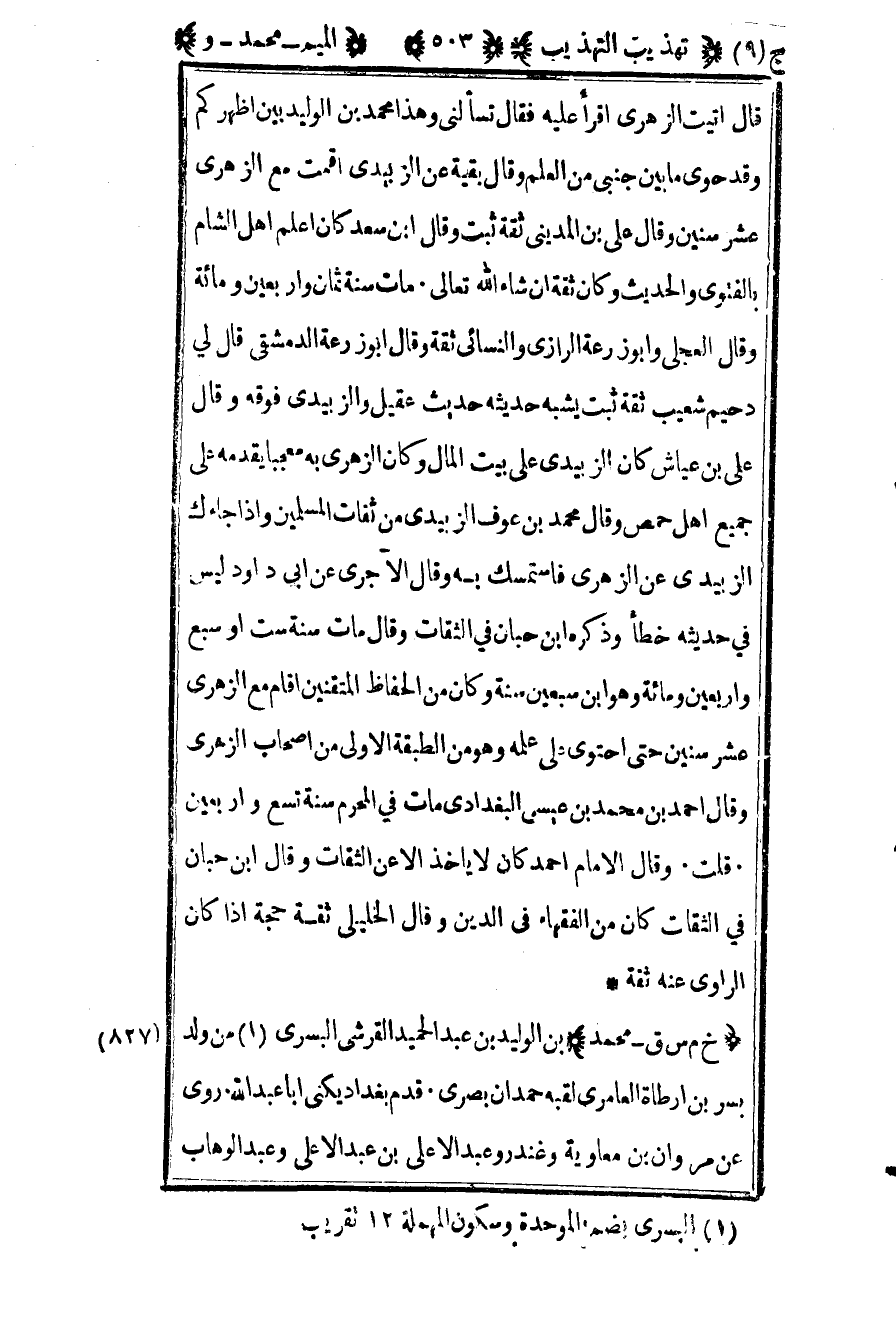 ج (٩) تهذيب التهذيب ٥٠٣ الميم ـ محمد ـ و
قال اتيت الزهرى اقرأ عليه فقال تسألنى وهذا محمد بن الوليد بين اظهركم
وقد حوى ما بين جنبى من العلم وقال بقية عن الزبيدى اقمت مع الزهرى
عشر سنين وقال على بن المدينى ثقة ثبت وقال ابن سعد كان اعلم اهل الشام
بالفتوى والحديث وكان ثقة ان شاء الله تعالى ٠ مات سنة ثمان واربعين ومائة
وقال العجلى وابو زرعة الرازى والنسائى ثقة وقال ابو زرعة الدمشقى قال لي
دحيم شعيب ثقة ثبت يشبه حديثه حديث عقيل والزبيدى فوقه وقال
على بن عياش كان الزبيدى على بيت المال وكان الزهرى به معجبا يقدمه على
جميع اهل حمص وقال محمد بن عوف الزبيدى من ثقات المسلمين واذا جاءك
الزبيدى عن الزهرى فاستمسك به وقال الآجرى عن ابي داود ليس
في حديثه خطأ وذكره ابن حبان في الثقات وقال مات سنة ست او سبع
واربعين ومائة وهو ابن سبعين سنة وكان من الحفاظ المتقنين اقام مع الزهرى
عشر سنين حتى احتوى على علمه وهو من الطبقة الاولى من اصحاب الزهرى
وقال احمد بن محمد بن عيسى البغدادى مات في المحرم سنة تسع واربعين
٠ قلت ٠ وقال الامام احمد كان لا ياخذ الا عن الثقات وقال ابن حبان
في الثقات كان من الفقهاء فى الدين وقال الخليلى ثقة حجة اذا كان
الراوى عنه ثقة *
خ م س ق ـ محمد بن الوليد بن عبد الحميد القرشى البسرى (١) من ولد (٨٢٧)
بسر بن ارطاة العامرى لقبه حمدان بصرى ٠ قدم بغداد يكنى ابا عبد الله ٠ روى
عن مروان بن معاوية وغندر وعبد الاعلى بن عبد الاعلى وعبد الوهاب
(١) البسرى بضم الموحدة وسكون المهملة ١٢ تقريب